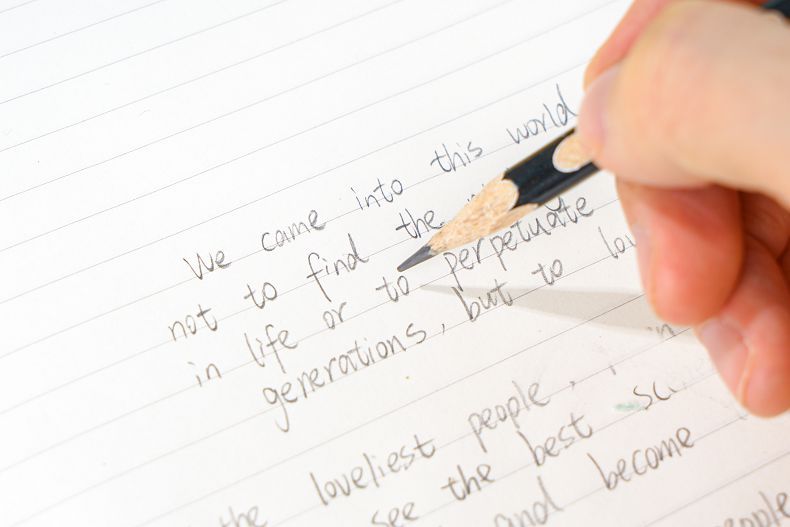 We came into this world
not to find the
in life or to perpetuate
generations, but to
the loveliest people,
see the best
and become